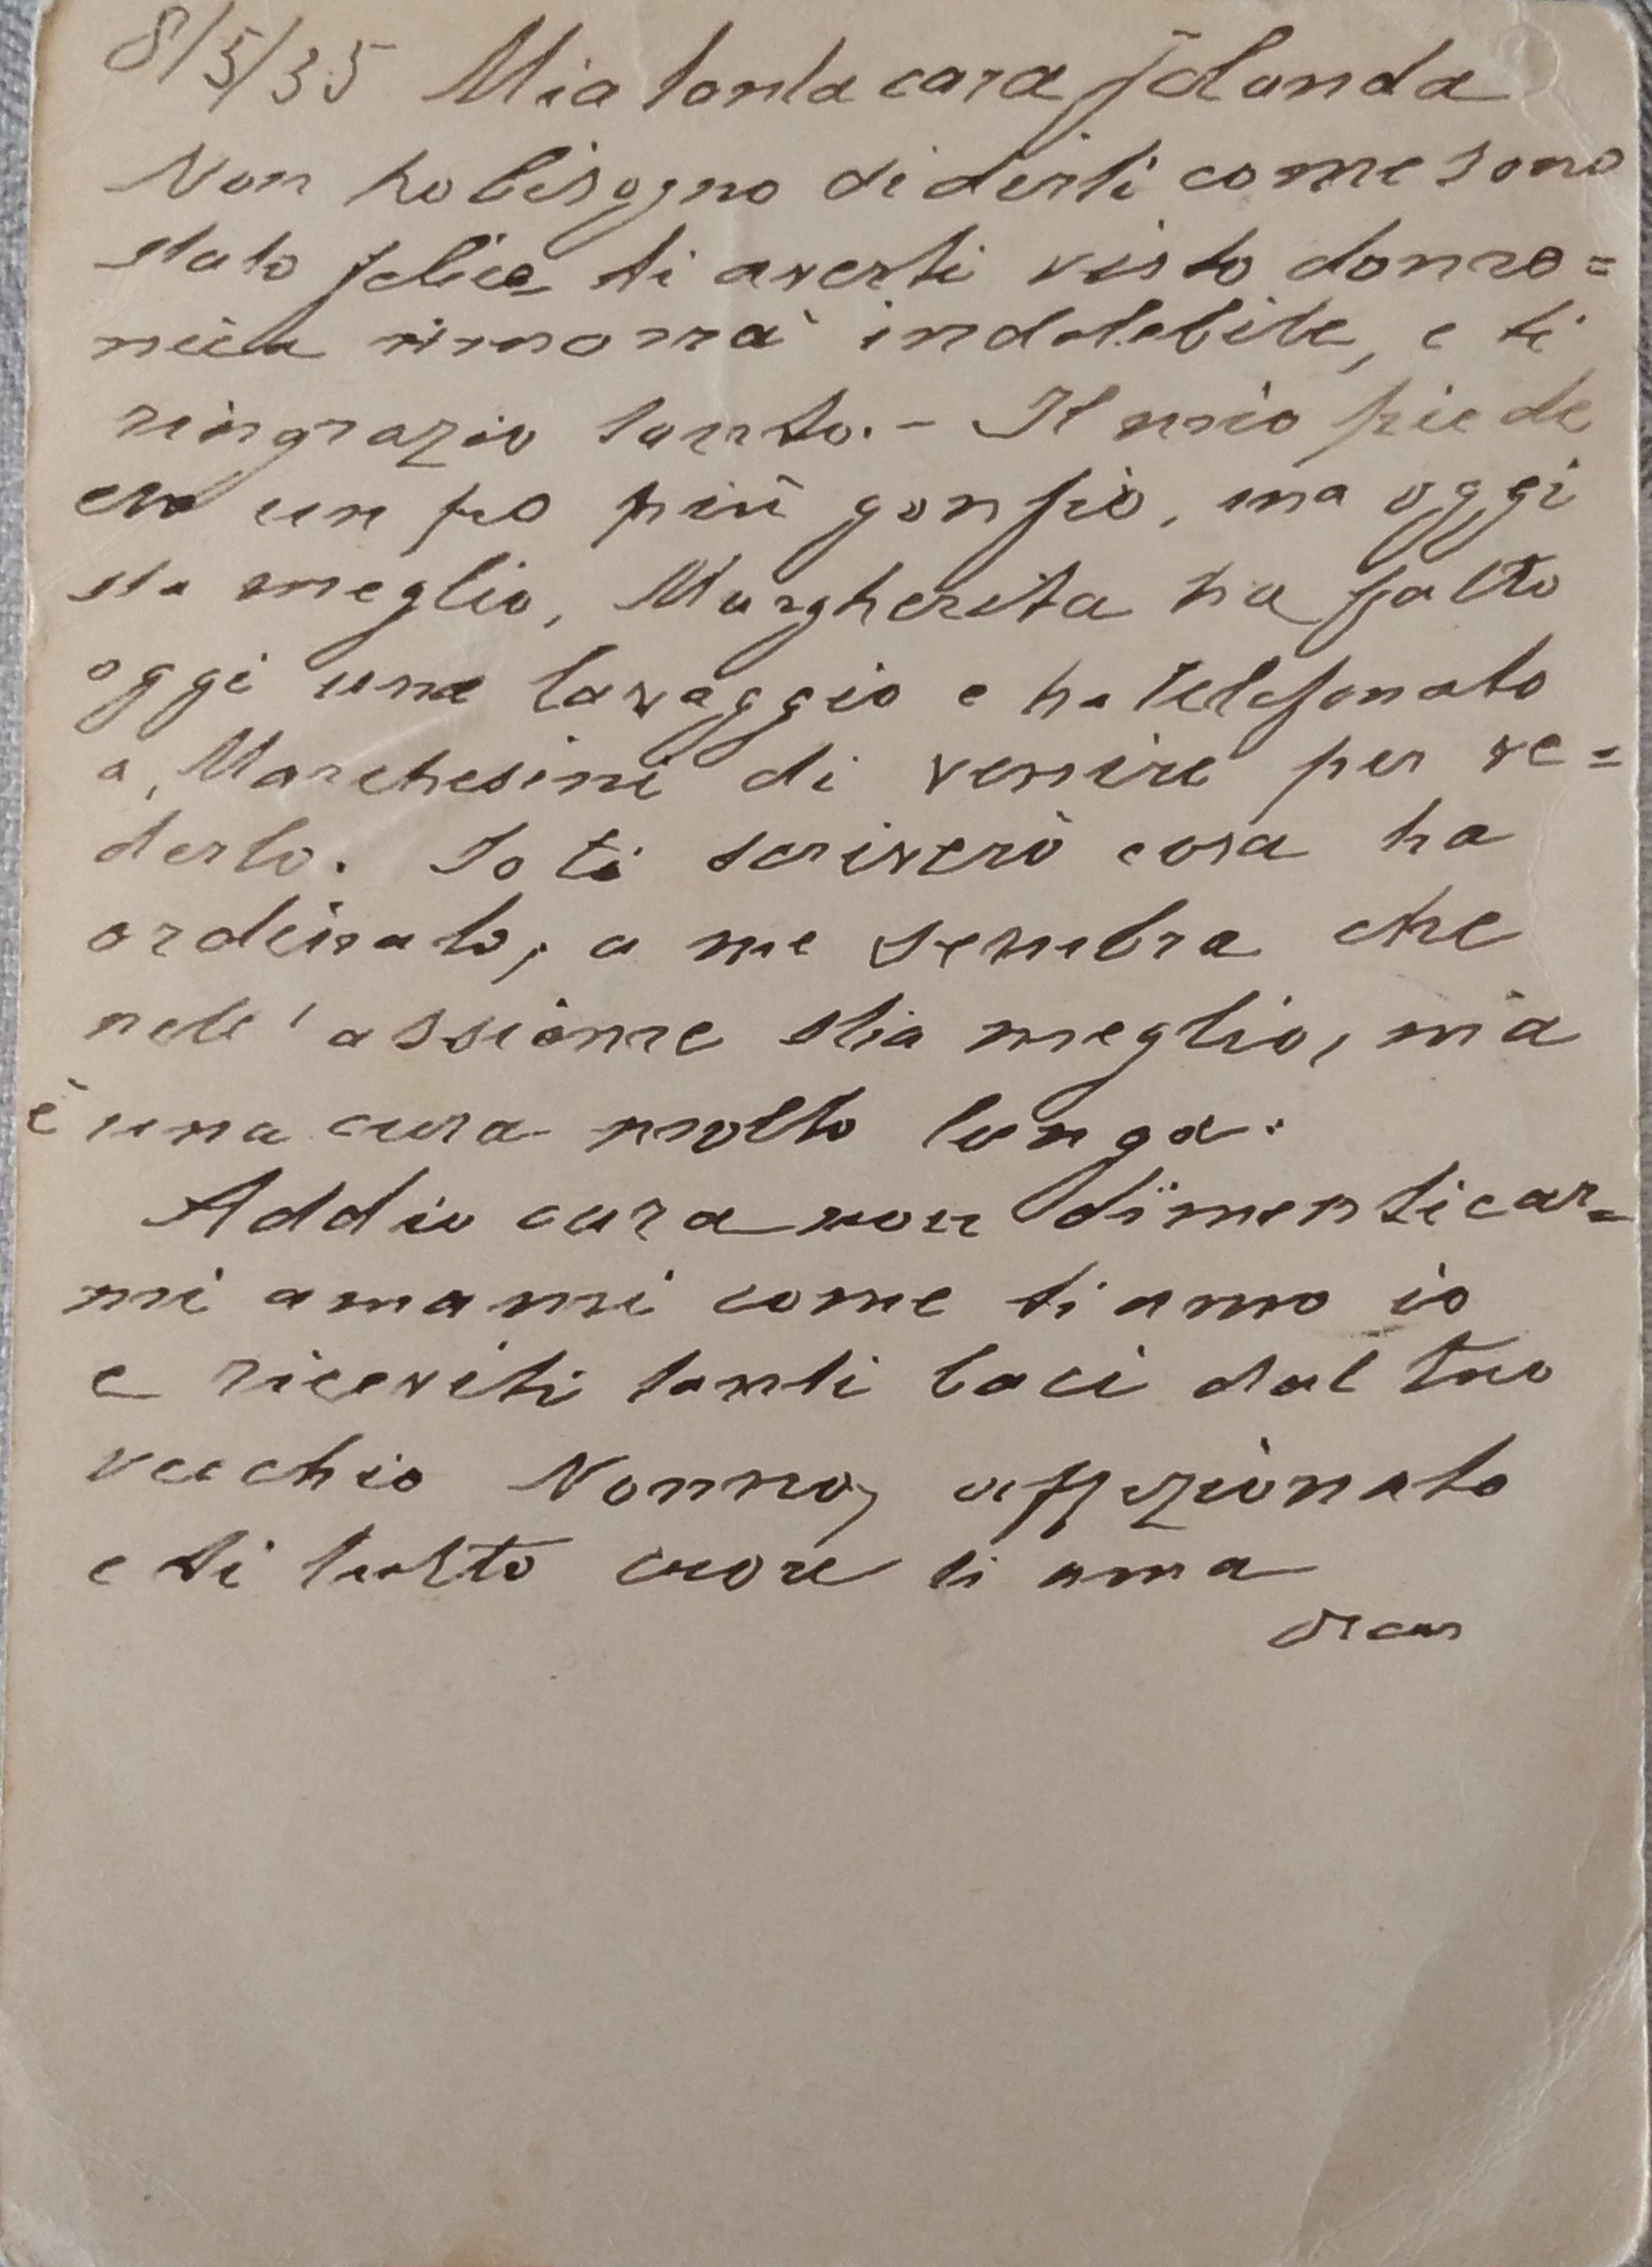 8/5/35 Mia tanta cara Jolanda
Non ho bisogno di dirti come sono
stato felice di averti visto dome=
nica rimarrà indelebile, e ti
ringrazio tanto. - Il mio piede
era un po più gonfio, ma oggi
sta meglio, Margherita ha fatto
oggi una lavaggio e ha telefonato
a, Marchesini di venire per ve=
derlo. Io ti scriverò cosa ha
ordinato, a me sembra che
nell'assieme stia meglio, ma
è una cura molto lunga.
Addio cara non dimenticar=
mi amami come ti amo io
e riceviti tanti baci dal tuo
vecchio Nonno, affezionato
e di tutto cuore ti ama